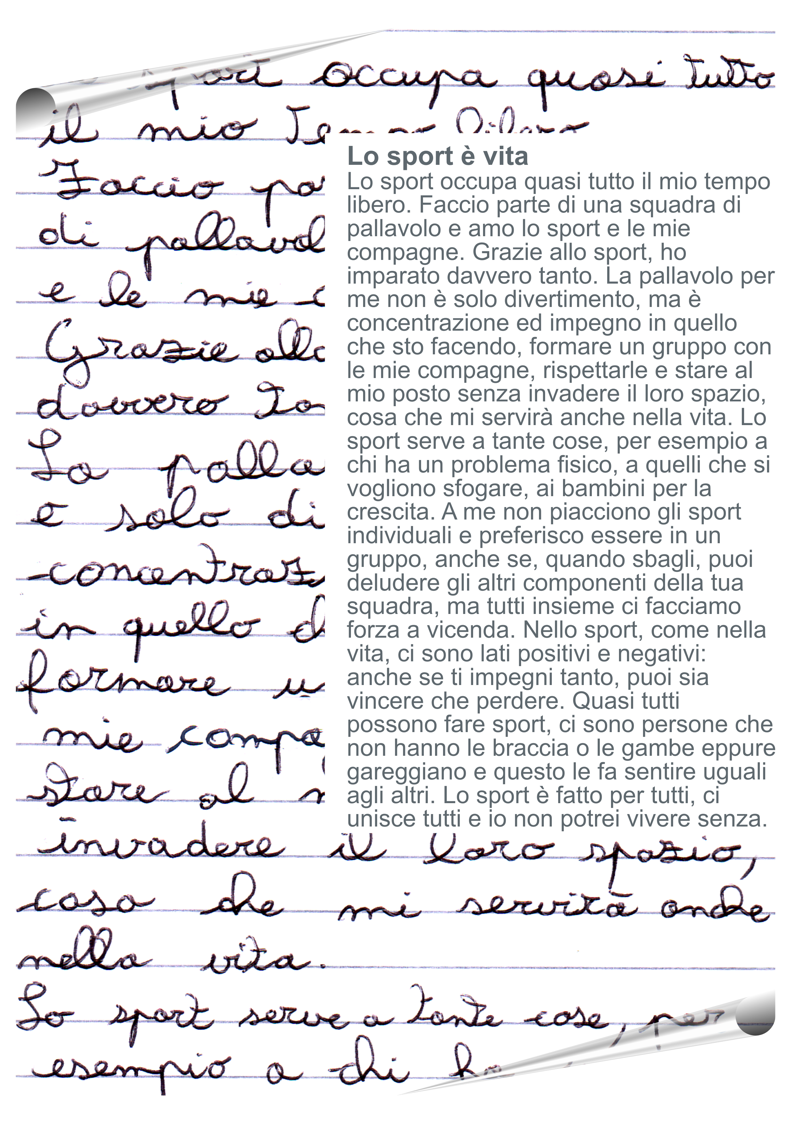 sport occupa quasi tutto
il mio Tempo libero
Faccio pa
di pallavol
e le mie c
Grazie allo
davvero Ta
La palla
è solo di
concentraz
in quello ch
formare u
mie compag
stare al m
invadere il loro spazio,
cosa che mi servirà anche
nella vita.
Lo sport serve a tante cose, per
esempio a chi ha
Lo sport è vita
Lo sport occupa quasi tutto il mio tempo
libero. Faccio parte di una squadra di
pallavolo e amo lo sport e le mie
compagne. Grazie allo sport, ho
imparato davvero tanto. La pallavolo per
me non è solo divertimento, ma è
concentrazione ed impegno in quello
che sto facendo, formare un gruppo con
le mie compagne, rispettarle e stare al
mio posto senza invadere il loro spazio,
cosa che mi servirà anche nella vita. Lo
sport serve a tante cose, per esempio a
chi ha un problema fisico, a quelli che si
vogliono sfogare, ai bambini per la
crescita. A me non piacciono gli sport
individuali e preferisco essere in un
gruppo, anche se, quando sbagli, puoi
deludere gli altri componenti della tua
squadra, ma tutti insieme ci facciamo
forza a vicenda. Nello sport, come nella
vita, ci sono lati positivi e negativi:
anche se ti impegni tanto, puoi sia
vincere che perdere. Quasi tutti
possono fare sport, ci sono persone che
non hanno le braccia o le gambe eppure
gareggiano e questo le fa sentire uguali
agli altri. Lo sport è fatto per tutti, ci
unisce tutti e io non potrei vivere senza.